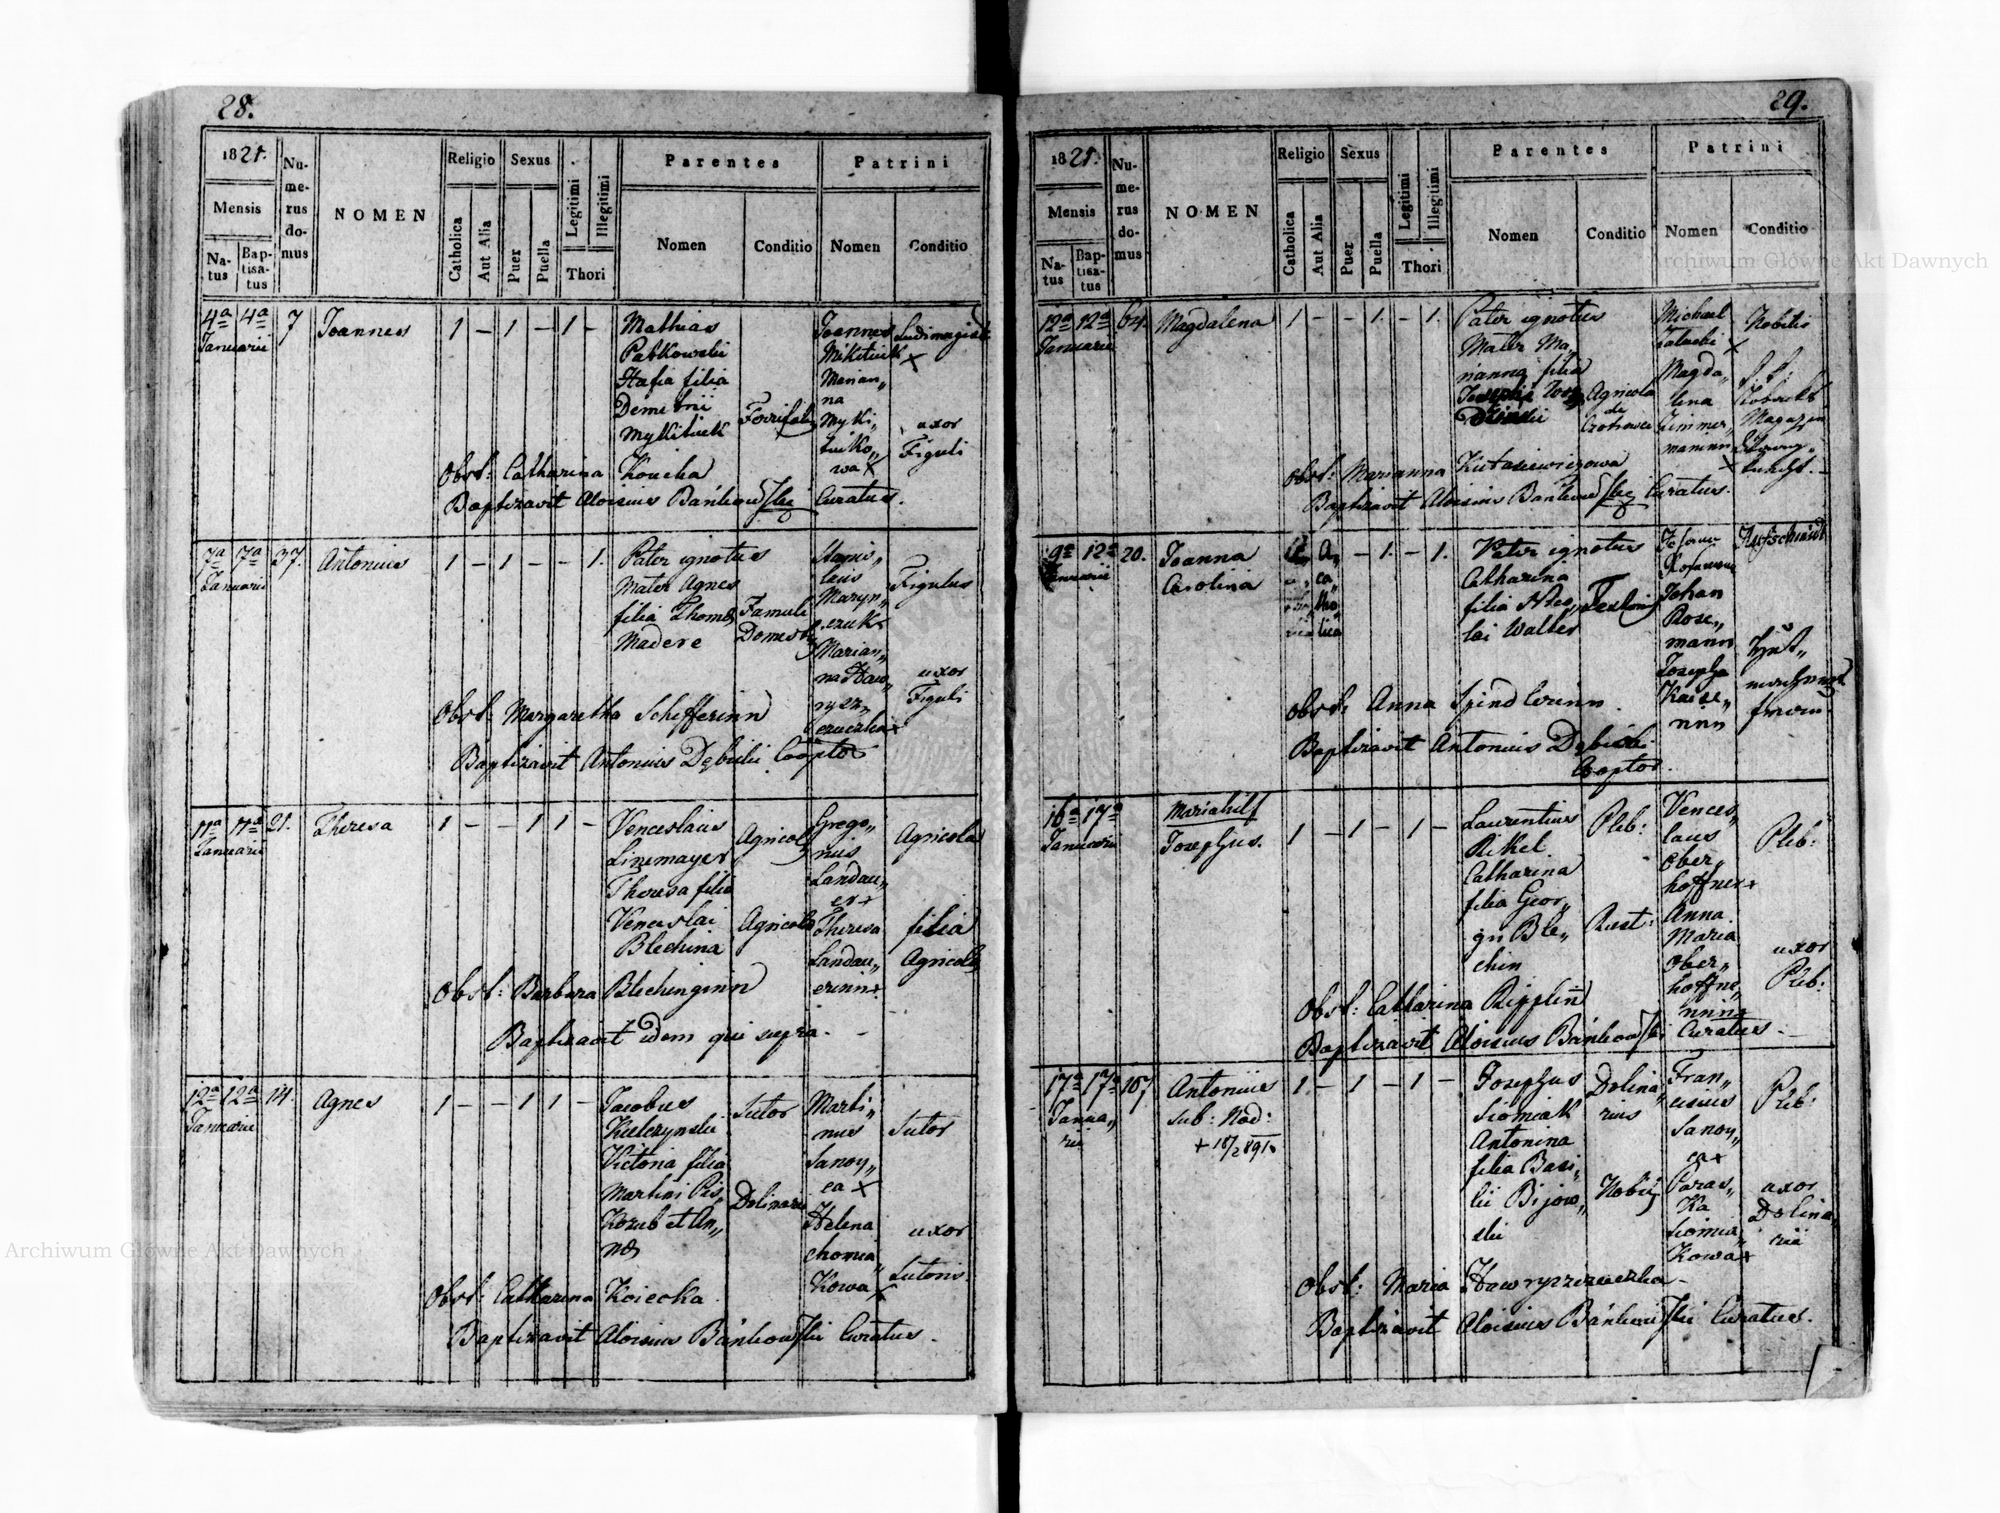 28.
1821.
Mensis
Na-
tus
Bap-
tisa-
tus
Nu-
me-
rus
do-
mus
NOMEN
Religio
Catholica
Aut Alia
Sexus
Puer
Puella
Legitimi
Illegitimi
Thori
Parentes
Nomen
Conditio
Patrini
Nomen
Conditio
4a 4a 7 Joannes 1 – 1 – 1 –
Januarii
Mathias
Patkowski
filia
Demetrii
Mykituik
Joannes
Mikituik
×
Marian„
na
Myki„
tuiko„
wa ×
uxor
Figuli
Obst: Catharina Koucka
Baptizavit Aloisius Bańkowski Curatus.
7a 7a 37. Antonius 1 – 1 – – 1.
Januarii
Pater ignotus
Mater Agnes
filia Thomæ
Madere
Famuli
Domest
Stanis„
laus
Maryn„
czuk
Marian„
na Haw„
rysz„
czuczka ×
Figulus
uxor
Figuli
Obst: Margaretha Schefferinn
Baptizavit Antonius Dębicki Cooptor
11a 11a 21. Theresa 1 – – 1 1 –
Januarii
Venceslaus
Linemayer
Theresa filia
Venceslai
Blechina
Agricola
Agricola
Grego„
rius
Landau„
er ×
Theresa
Landau„
erinn ×
Agricola
filia
Agricolæ
Obst: Barbara Blechinginn
Baptizavit idem qui supra.
12a 12a 14. Agnes 1 – – 1 1 –
Januarii
Jacobus
Kielczynski
Victoria filia
Martini Pis„
Kozub et An„
næ
Sutor
Dolinari
Marti„
nus
Sanoy„
ca ×
Helena
Chomia„
kowa ×
Sutor
uxor
Sutoris.
Obst: Catharina Koiecka
Baptizavit Aloisius Bańkowski Curatus.
29.
1821.
Mensis
Na-
tus
Bap-
tisa-
tus
Nu-
me-
rus
do-
mus
NOMEN
Religio
Catholica
Aut Alia
Sexus
Puer
Puella
Legitimi
Illegitimi
Thori
Parentes
Nomen
Conditio
Patrini
Nomen
Conditio
12a 12a 64. Magdalena 1 – – 1 – 1.
Januarii
Pater ignotus
Mater Ma„
rianna filia
Josephi
Agricola
de
Michael
Zaleski ×
Magda„
lena
Zimmer„
maninn ×
Nobilis
Obst: Marianna Kutasiewiczowa
Baptizavit Aloisius Bańkowski Curatus.
9a 12a 20. Joanna
Januarii
Carolina
A„
ca„
tho„
lica
– 1. – 1.
Pater ignotus
Catharina
filia
lai Walter
Johan
Rose„
mann
Josepha
Kaise„
rinn
Obst: Anna Spindlerinn.
Baptizavit Antonius Dębicki
Cooptor.
16a 17a Mariahilf
Januarii
Josephus. 1 – 1 – 1 –
Laurentius
Rikel
Catharina
filia Geor„
gii Ble„
chin
Pleb:
Rust:
Vences„
laus
Ober„
hoffner ×
Anna
Maria
Ober„
hoffne„
rinn
Pleb:
uxor
Pleb:
Obst: Catharina Ripplin
Baptizavit Aloisius Bańkowski Curatus.
17a 17a 107 Antonius 1 – 1 – 1 –
Janua„
rii
sub: Nad:
+ 18/2 891.
Josephus
Siomiak
Antonina
filia Basi„
lii Bijow„
ski
Dolina„
rius
Nobilis
Fran„
ciscus
Sanoy„
ca ×
Paras„
ka
Siomia„
kowa ×
Pleb:
uxor
Dolina„
rii
Obst: Maria Hawryszczuczka
Baptizavit Aloisius Bańkowski Curatus.
Archiwum Główne Akt Dawnych
Archiwum Główne Akt Dawnych